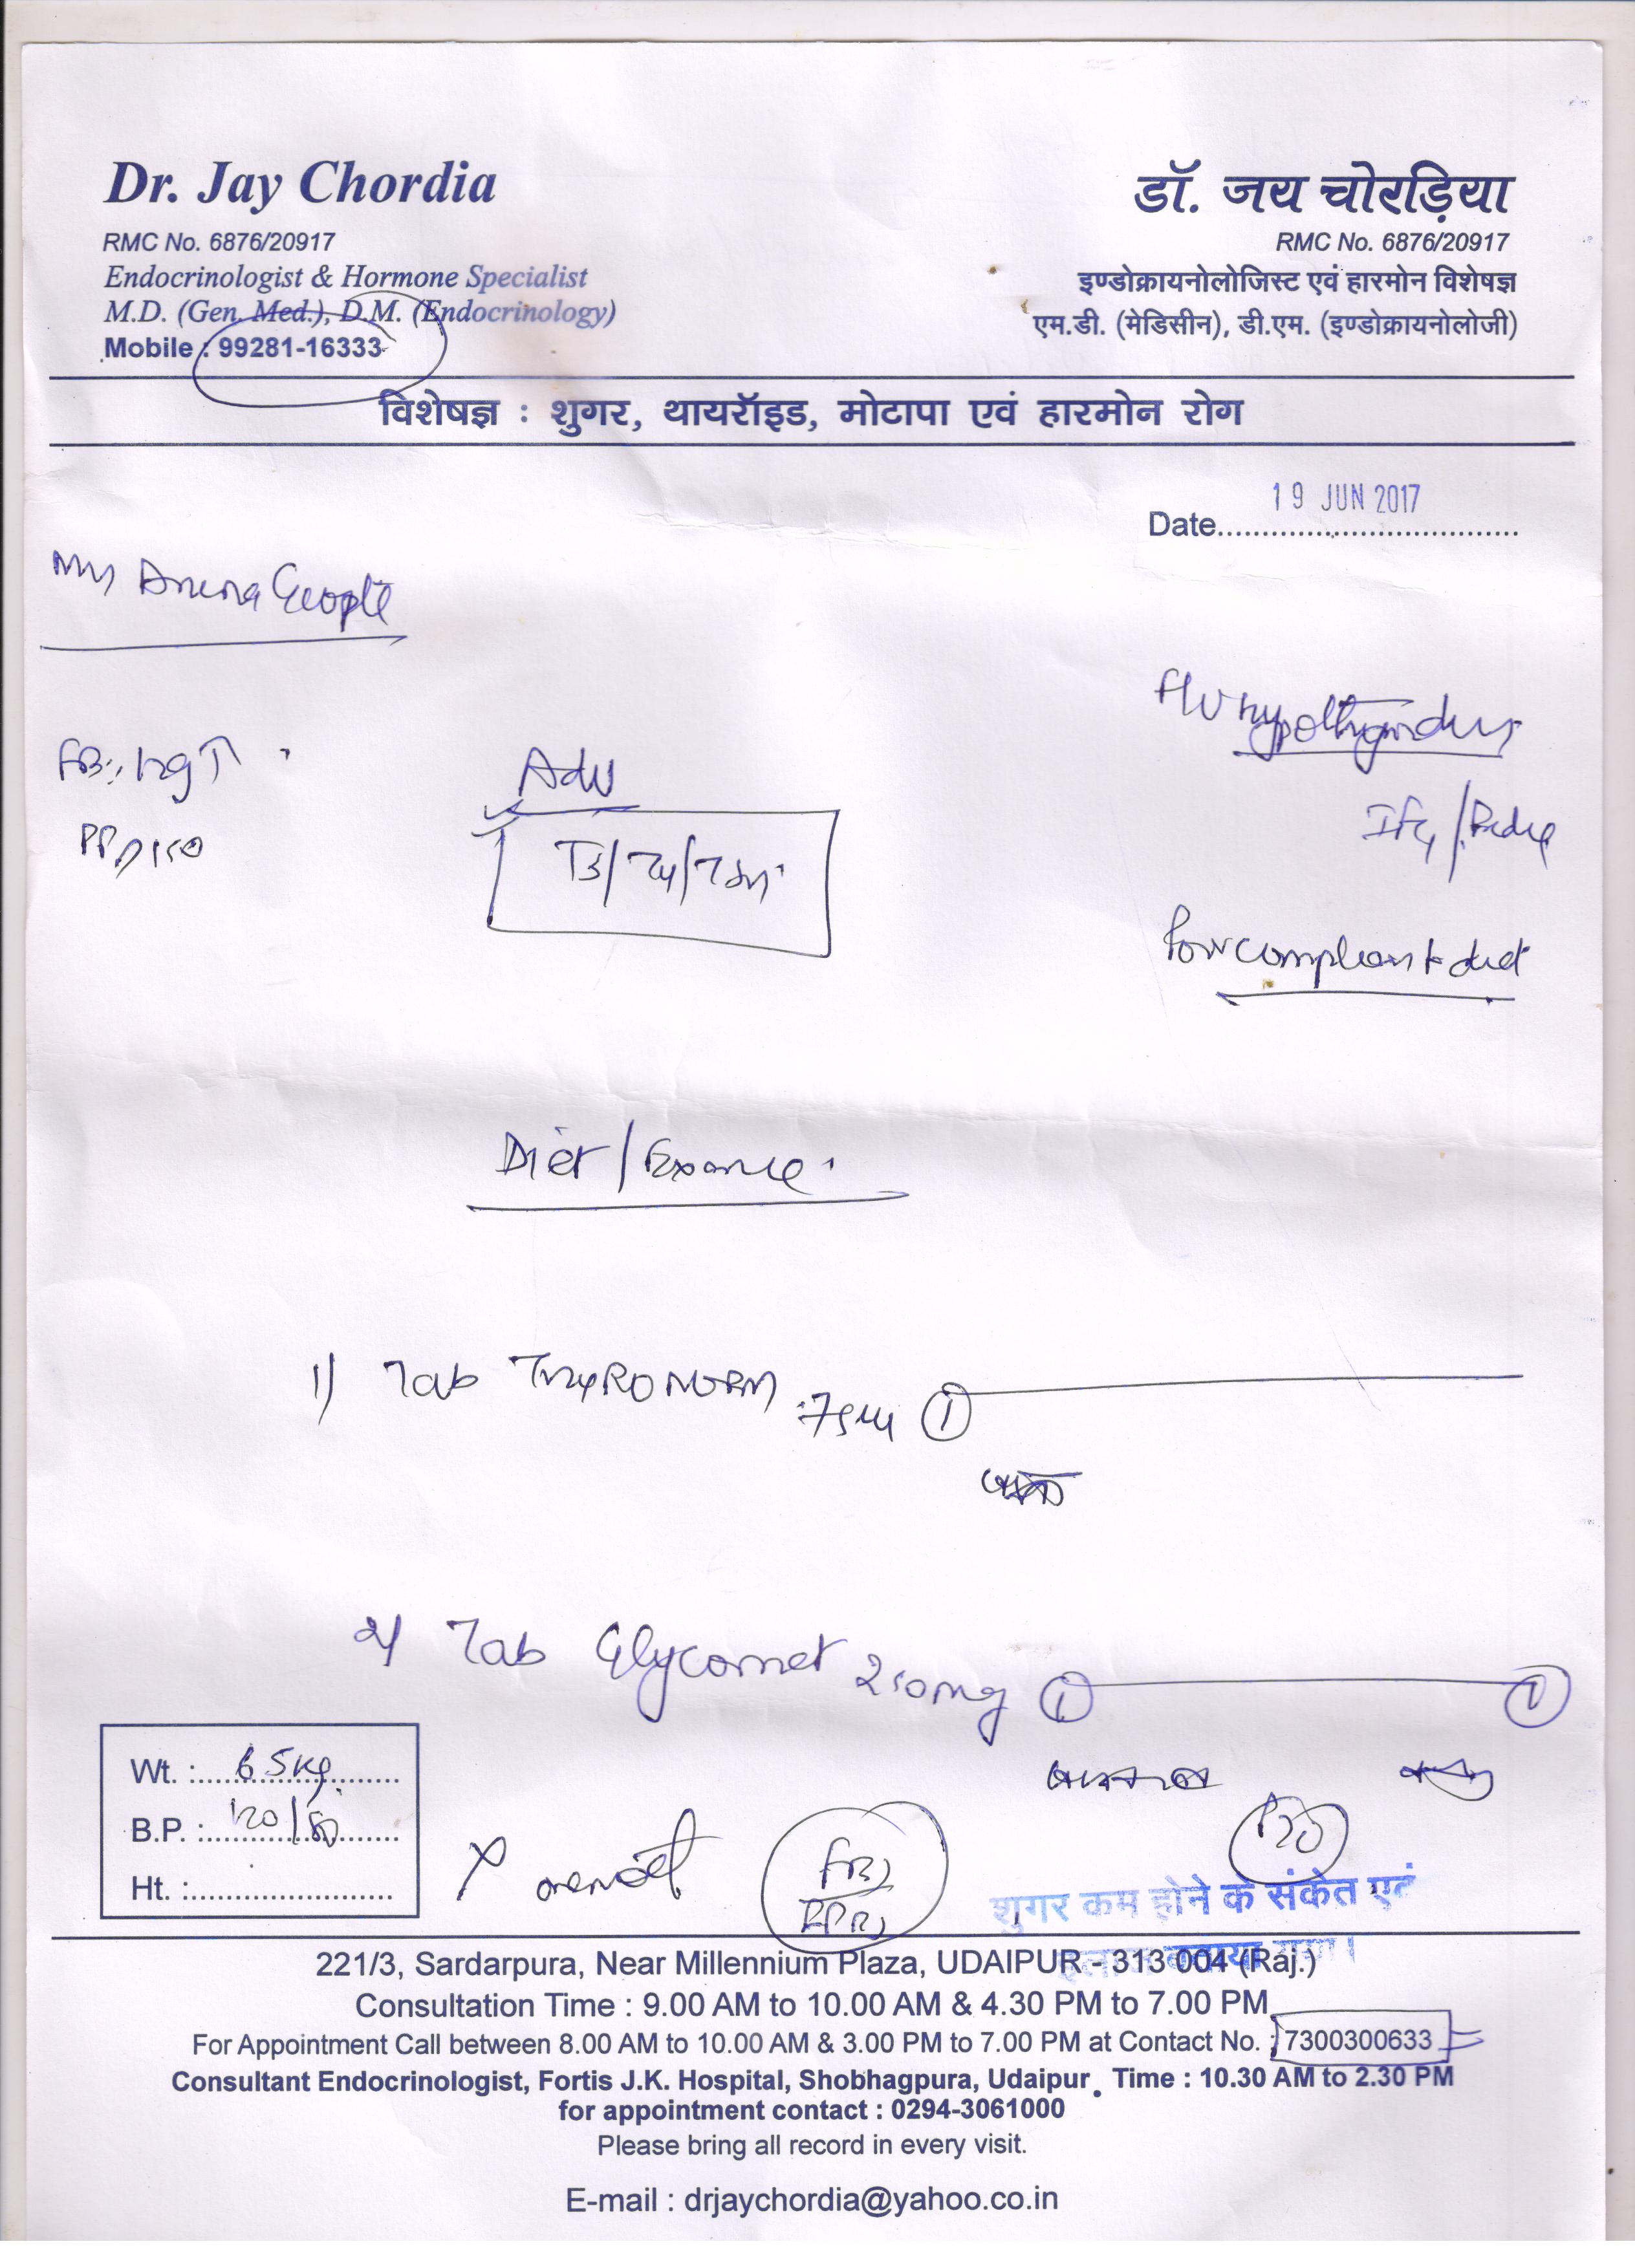 Dr. Jay Chordia
RMC No. 6876/20917
Endocrinologist & Hormone Specialist
M.D. (Gen. Med.), D.M. (Endocrinology)
Mobile : 99281-16333
डॉ. जय चोरड़िया
RMC No. 6876/20917
इण्डोक्रायनोलोजिस्ट एवं हारमोन विशेषज्ञ
एम.डी. (मेडिसीन), डी.एम. (इण्डोक्रायनोलोजी)
विशेषज्ञ : शुगर, थायरॉइड, मोटापा एवं हारमोन रोग
Date 19 JUN 2017
Adv
T3/T4/TSH
Diet /
1) Tab THYRONORM 75 ①
2) Tab Glycomet 250mg ① ①
Wt. : 65kg
B.P. : 120/80
Ht. :
FBS
PPBS
शुगर कम होने के संकेत एवं
इलाज बताया गया।
221/3, Sardarpura, Near Millennium Plaza, UDAIPUR - 313 004 (Raj.)
Consultation Time : 9.00 AM to 10.00 AM & 4.30 PM to 7.00 PM
For Appointment Call between 8.00 AM to 10.00 AM & 3.00 PM to 7.00 PM at Contact No. : 7300300633
Consultant Endocrinologist, Fortis J.K. Hospital, Shobhagpura, Udaipur. Time : 10.30 AM to 2.30 PM
for appointment contact : 0294-3061000
Please bring all record in every visit.
E-mail : drjaychordia@yahoo.co.in